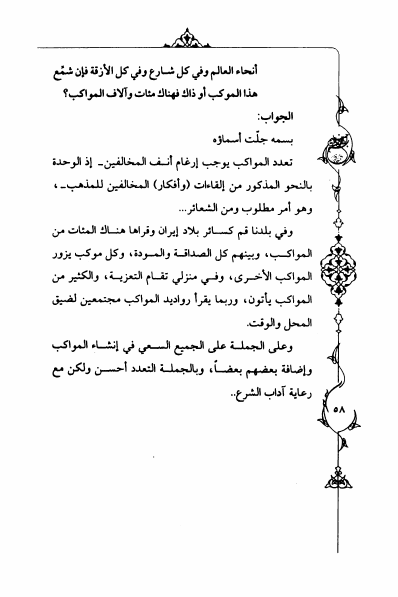 أنحاء العالم وفي كل شارع وفي كل الأزقة فإن شمّع
هذا الموكب أو ذاك فهناك مئات وآلاف المواكب؟
الجواب:
بسمه جلّت أسماؤه
تعدد المواكب يوجب إرغام أنف المخالفين_ إذ الوحدة
بالنحو المذكور من إلقاءات (وأفكار) المخالفين للمذهب_،
وهو أمر مطلوب ومن الشعائر...
وفي بلدنا قم كسائر بلاد إيران وقراها هناك المئات من
المواكب، وبينهم كل الصداقة والمودة، وكل موكب يزور
المواكب الأخرى، وفي منزلي تقام التعزية، والكثير من
المواكب يأتون، وربما يقرأ رواديد المواكب مجتمعين لضيق
المحل والوقت.
وعلى الجملة على الجميع السعي في إنشاء المواكب
وإضافة بعضهم بعضاً، وبالجملة التعدد أحسن ولكن مع
رعاية آداب الشرع..
٥٨